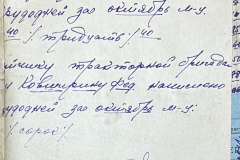 трудодней за октябрь м-ц.
40 /тридцать/ 40
тракторной бригады
у Ковширину Фед. начислено
трудодней за октябрь м-ц:
/сорок/